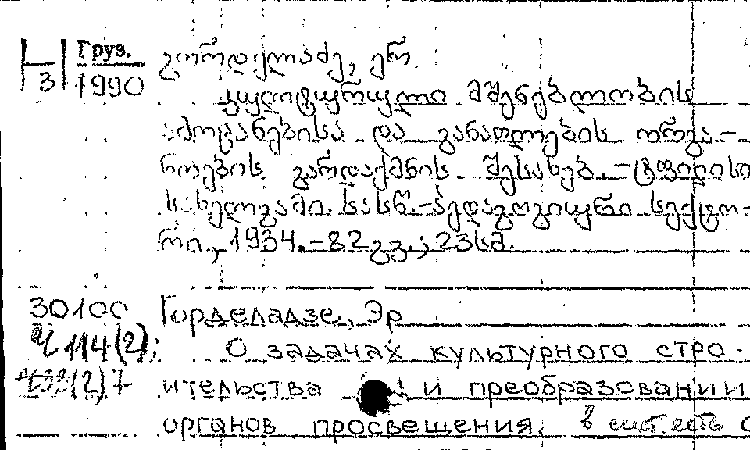 Груз.
H
3 1990
გორდელაძე, ერ
კულტურული მშენებლობის
ამოცანებისა და განათლების ორგა-
ნოების გარდაქმნის შესახებ.-ტფილისი
სახელგამი. სასწ.-პედაგოგიური სექტო-
რი., 1934.-82გვ.; 23სმ.
30100 Горделадзе, Эр
114(2); О задачах культурного стро-
(2)7 ительства и преобразовании
органов просвещения.